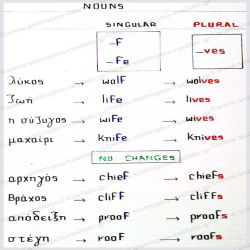 NOUNS
SINGULAR PLURAL
-F -ves
-Fe
λύκος → wolF → wolves
ζωή → liFe → lives
η σύζυγος → wiFe → wives
μαχαίρι → kniFe → knives
NO CHANGES
αρχηγός → chieF → chieFs
βράχος → cliFF → cliFFs
απόδειξη → prooF → prooFs
στέγη → rooF → rooFs